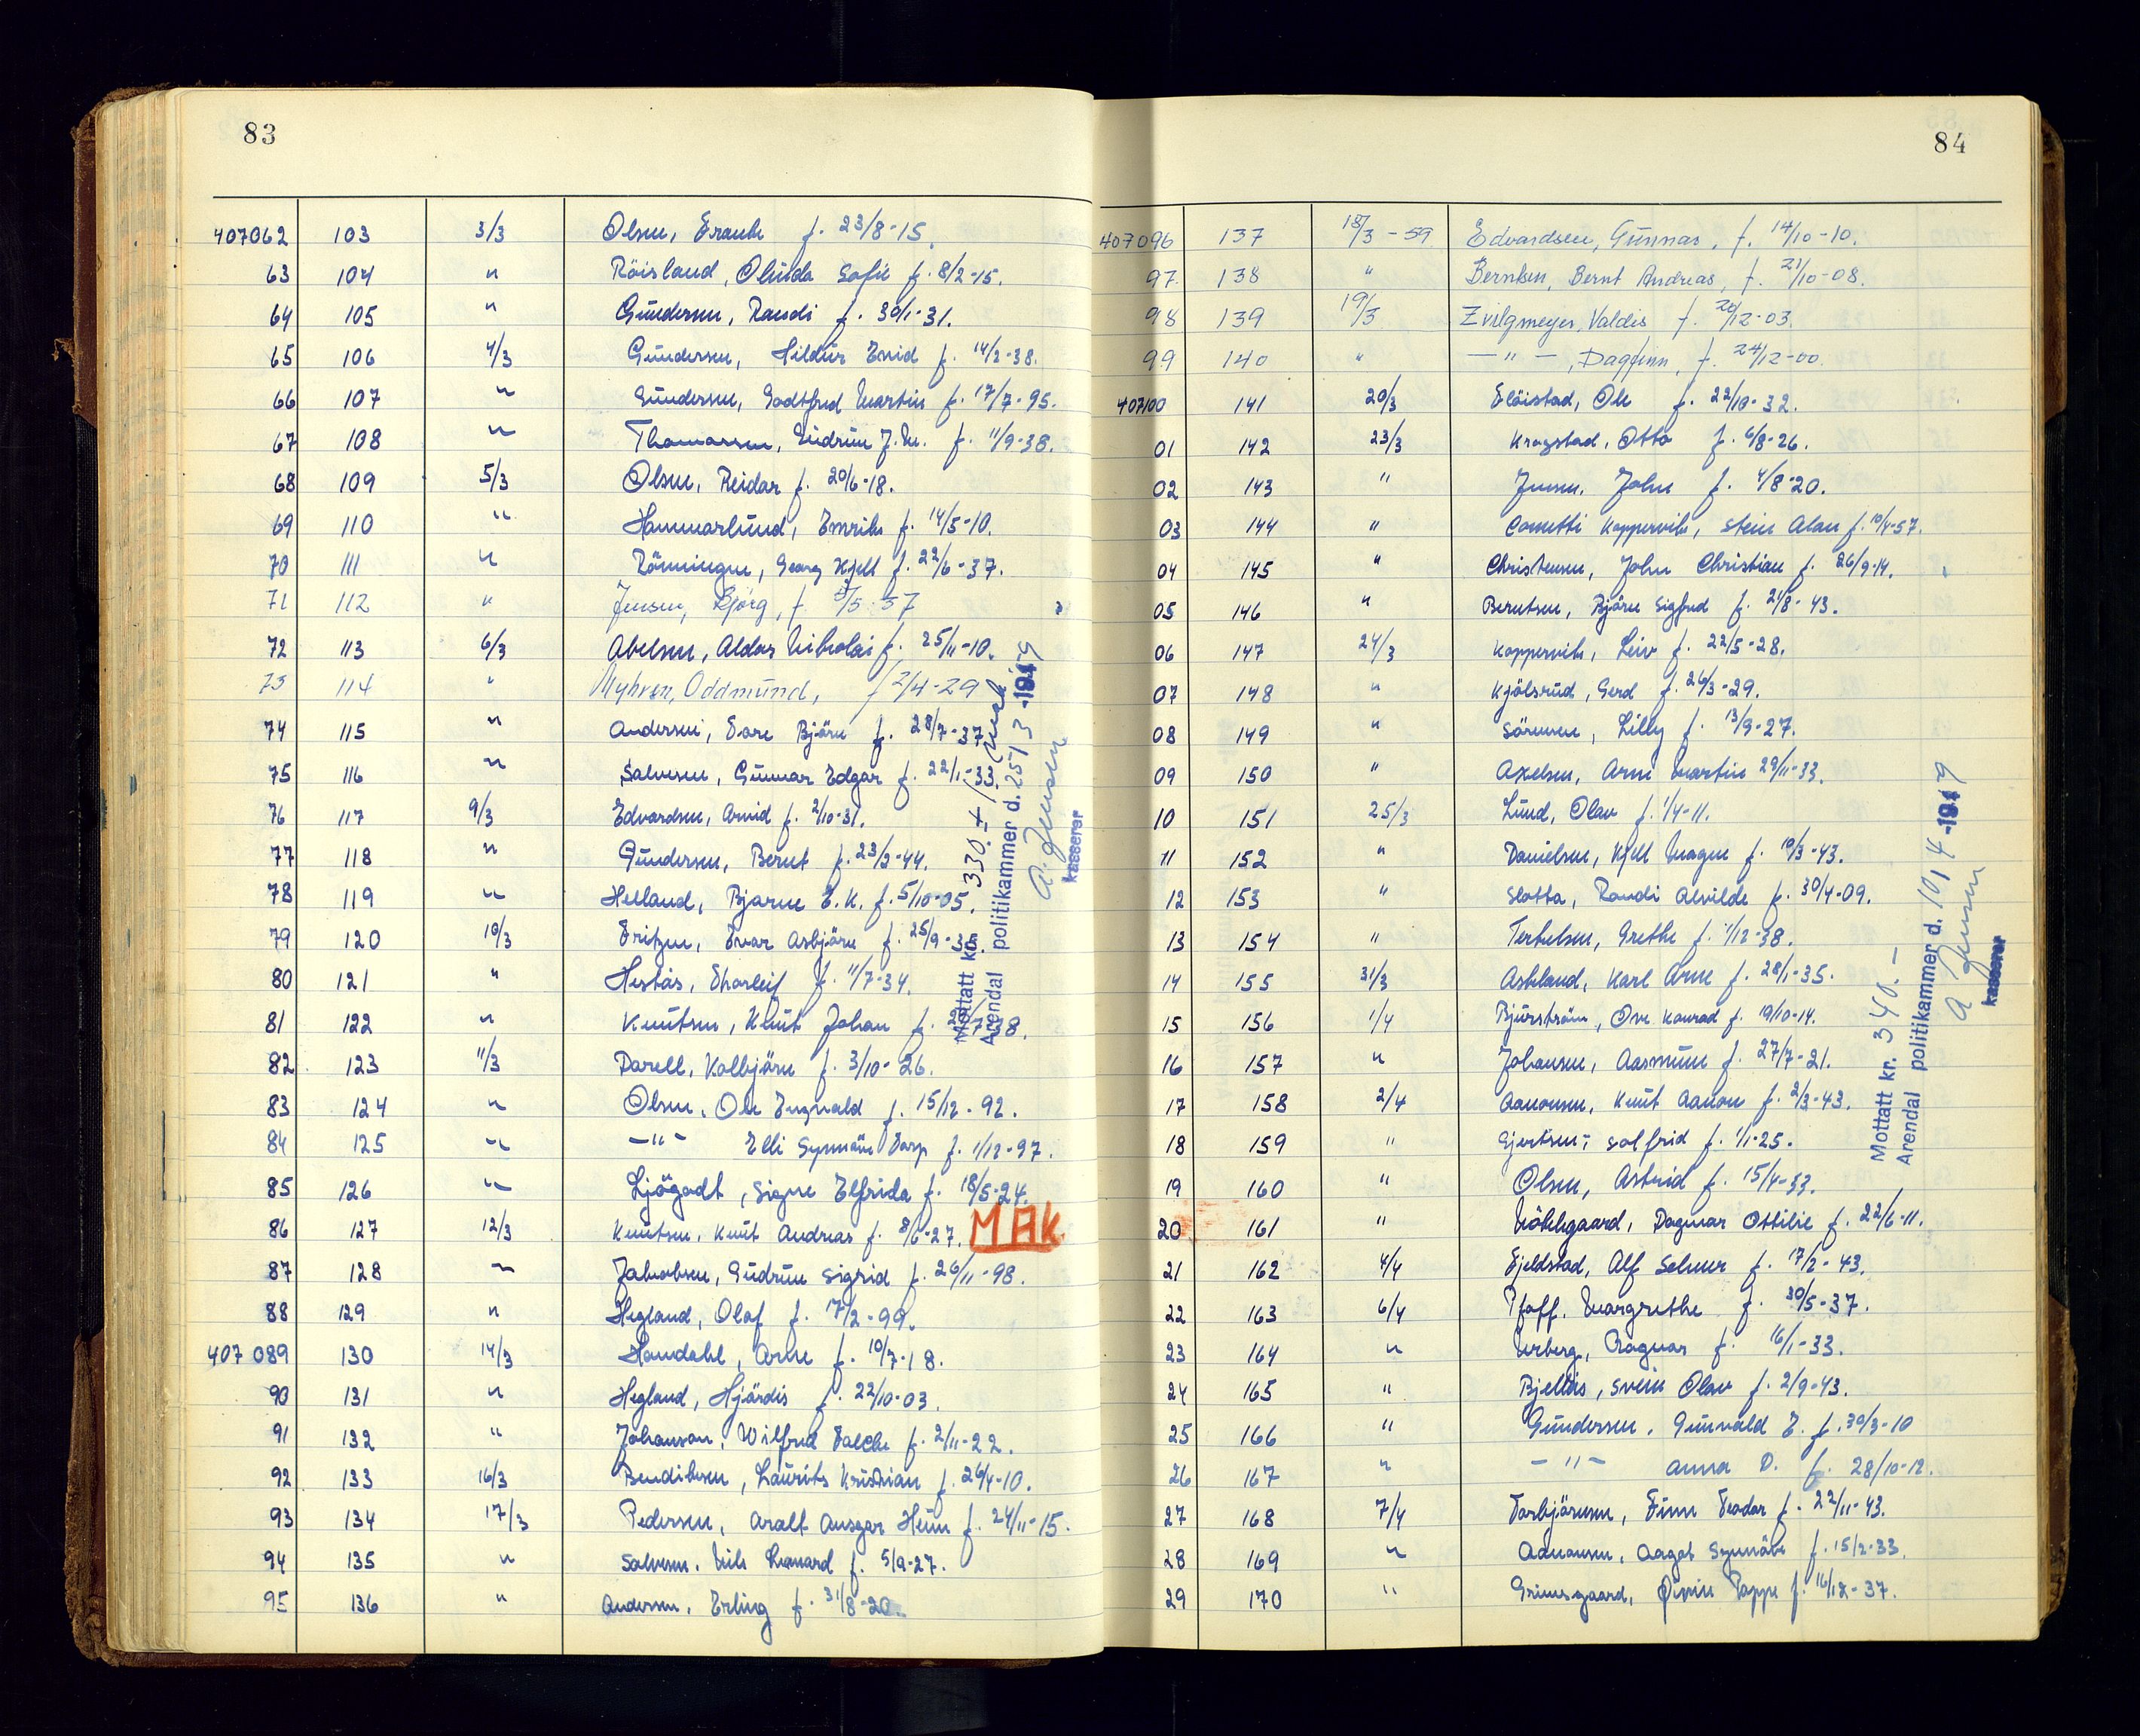 83
407062 103 3/3 Olsen, Frank f. 23/8-15.
63 104 " Röisland, Olinda Sofie f. 8/2-15.
64 105 " Gundersen, Randi f. 30/1-31.
65 106 4/3 Gundersen, Hildur Enid f. 14/2-38.
66 107 " Gundersen, Godtfred Martin f. 17/7-95.
67 108 " Thomassen, Gudrun J. M. f. 11/9-38.
68 109 5/3 Olsen, Reidar f. 20/6-18.
69 110 " Hammarlund, Henrik f. 14/5-10.
70 111 " Rönningen, Georg Kjell f. 22/6-37.
71 112 " Jensen, Bjørg, f. /5-37
72 113 6/3 Abelsen, Aldor Nikolai f. 25/11-10.
73 114 " Myhren, Oddmund, f 2/4-29
74 115 " Andersen, Tore Björn f. 28/7-37
75 116 " Salvesen, Gunnar Edgar f. 22/1-33.
76 117 9/3 Edvardsen, Arvid f. 2/10-31.
77 118 " Gundersen, Bernt f. 23/2-44.
78 119 " Helland, Bjarne E. K. f. 5/10-05.
79 120 10/3 Fritzen, Ivar Asbjörn f. 25/9-35.
80 121 " Hestås, Thorleif f. 11/7-34.
81 122 " Knutsen, Knut Johan f. /7-38.
82 123 11/3 Darell, Kolbjörn f. 3/10-26.
83 124 " Olsen, Ole Ingvald f. 15/12-92.
84 125 " —"— Elli Synnöve Torp f. 1/12-97.
85 126 " Ljögodt, Signe Elfrida f. 18/5-24.
86 127 12/3 Knutsen, Knut Andreas f. 8/6-27. MAK
87 128 " Jakobsen, Gudrun Sigrid f. 26/11-98.
88 129 " Hegland, Olaf f. 17/2-99.
407089 130 14/3 Haudahl, Arne f. 10/7-18.
90 131 " Hegland, Hjördis f. 22/10-03.
91 132 " Johanson, Wilfred f. 2/11-22.
92 133 16/3 Bendiksen, Laurits Kristian f. 26/4-10.
93 134 17/3 Pedersen, Aralt Ansgar Heim f. 24/11-15.
94 135 " Salvesen, Nils Leonard f. 5/9-27.
95 136 " Andersen, Erling f. 31/8-20.
Mottatt kr. 330.-
Arendal politikammer d. 25/3-1949
A. Jensen
kasserer
84
407096 137 18/3-59 Edvardsen, Gunnar, f. 14/10-10.
97 138 " Berntsen, Bernt Andreas, f. 21/10-08.
98 139 19/3 Zvilgmeyer, Valdis f. 20/12-03.
99 140 " —"—, Dagfinn, f. 24/12-00.
407100 141 20/3 Fløistad, Ole f. 22/10-32.
01 142 23/3 Kragstad, Otto f. 6/8-26.
02 143 " Jensen, John f. 4/8-20.
03 144 " Cometti Koppervik, Stein Alan f. 10/4-57.
04 145 " Christensen, John Christian f. 26/9-14.
05 146 " Berntsen, Bjørn Sigfred f. 21/8-43.
06 147 24/3 Koppervik, Leiv f. 22/5-28.
07 148 " Kjölsrud, Gerd f. 26/3-29.
08 149 " Sörensen, Lilly f. 13/9-27.
09 150 " Axelsen, Arne Martin 29/11-33.
10 151 25/3 Lund, Olav f. 1/4-11.
11 152 " Danielsen, Kjell Magne f. 10/3-43.
12 153 " Slotta, Randi Alvilde f. 30/4-09.
13 154 " Terkelsen, Grethe f. 1/12-38.
14 155 31/3 Askland, Karl Arne f. 28/1-35.
15 156 1/4 Bjurström, Ove Konrad f. 19/10-14.
16 157 " Johansen, Aasmund f. 27/7-21.
17 158 2/4 Aanonsen, Knut Aanon f. 2/3-43.
18 159 " Gjertsen, Solfrid f. 1/1-25.
19 160 " Olsen, Astrid f. 15/4-33.
20 161 " Nökkgaard, Dagmar Ottilie f. 22/6-11.
21 162 4/4 Fjeldstad, Alf Selmer f. 17/2-43.
22 163 6/4 Pfaff, Margrethe f. 30/5-37.
23 164 " Urberg, Ragnar f. 16/1-33.
24 165 " Bjellås, Svein Olav f. 2/9-43.
25 166 " Gundersen, Gunvald E. f. 30/3-10
26 167 " —"— Anna D. f. 28/10-12.
27 168 7/4 Torbjörnsen, Finn Teodor f. 22/11-43.
28 169 " Aanonsen, Aagot Synnöve f. 15/2-33.
29 170 " Grimsgaard, Pappe f. 16/12-37.
Mottatt kr. 340.-
Arendal politikammer d. 10/4-1949
A Jensen
kasserer